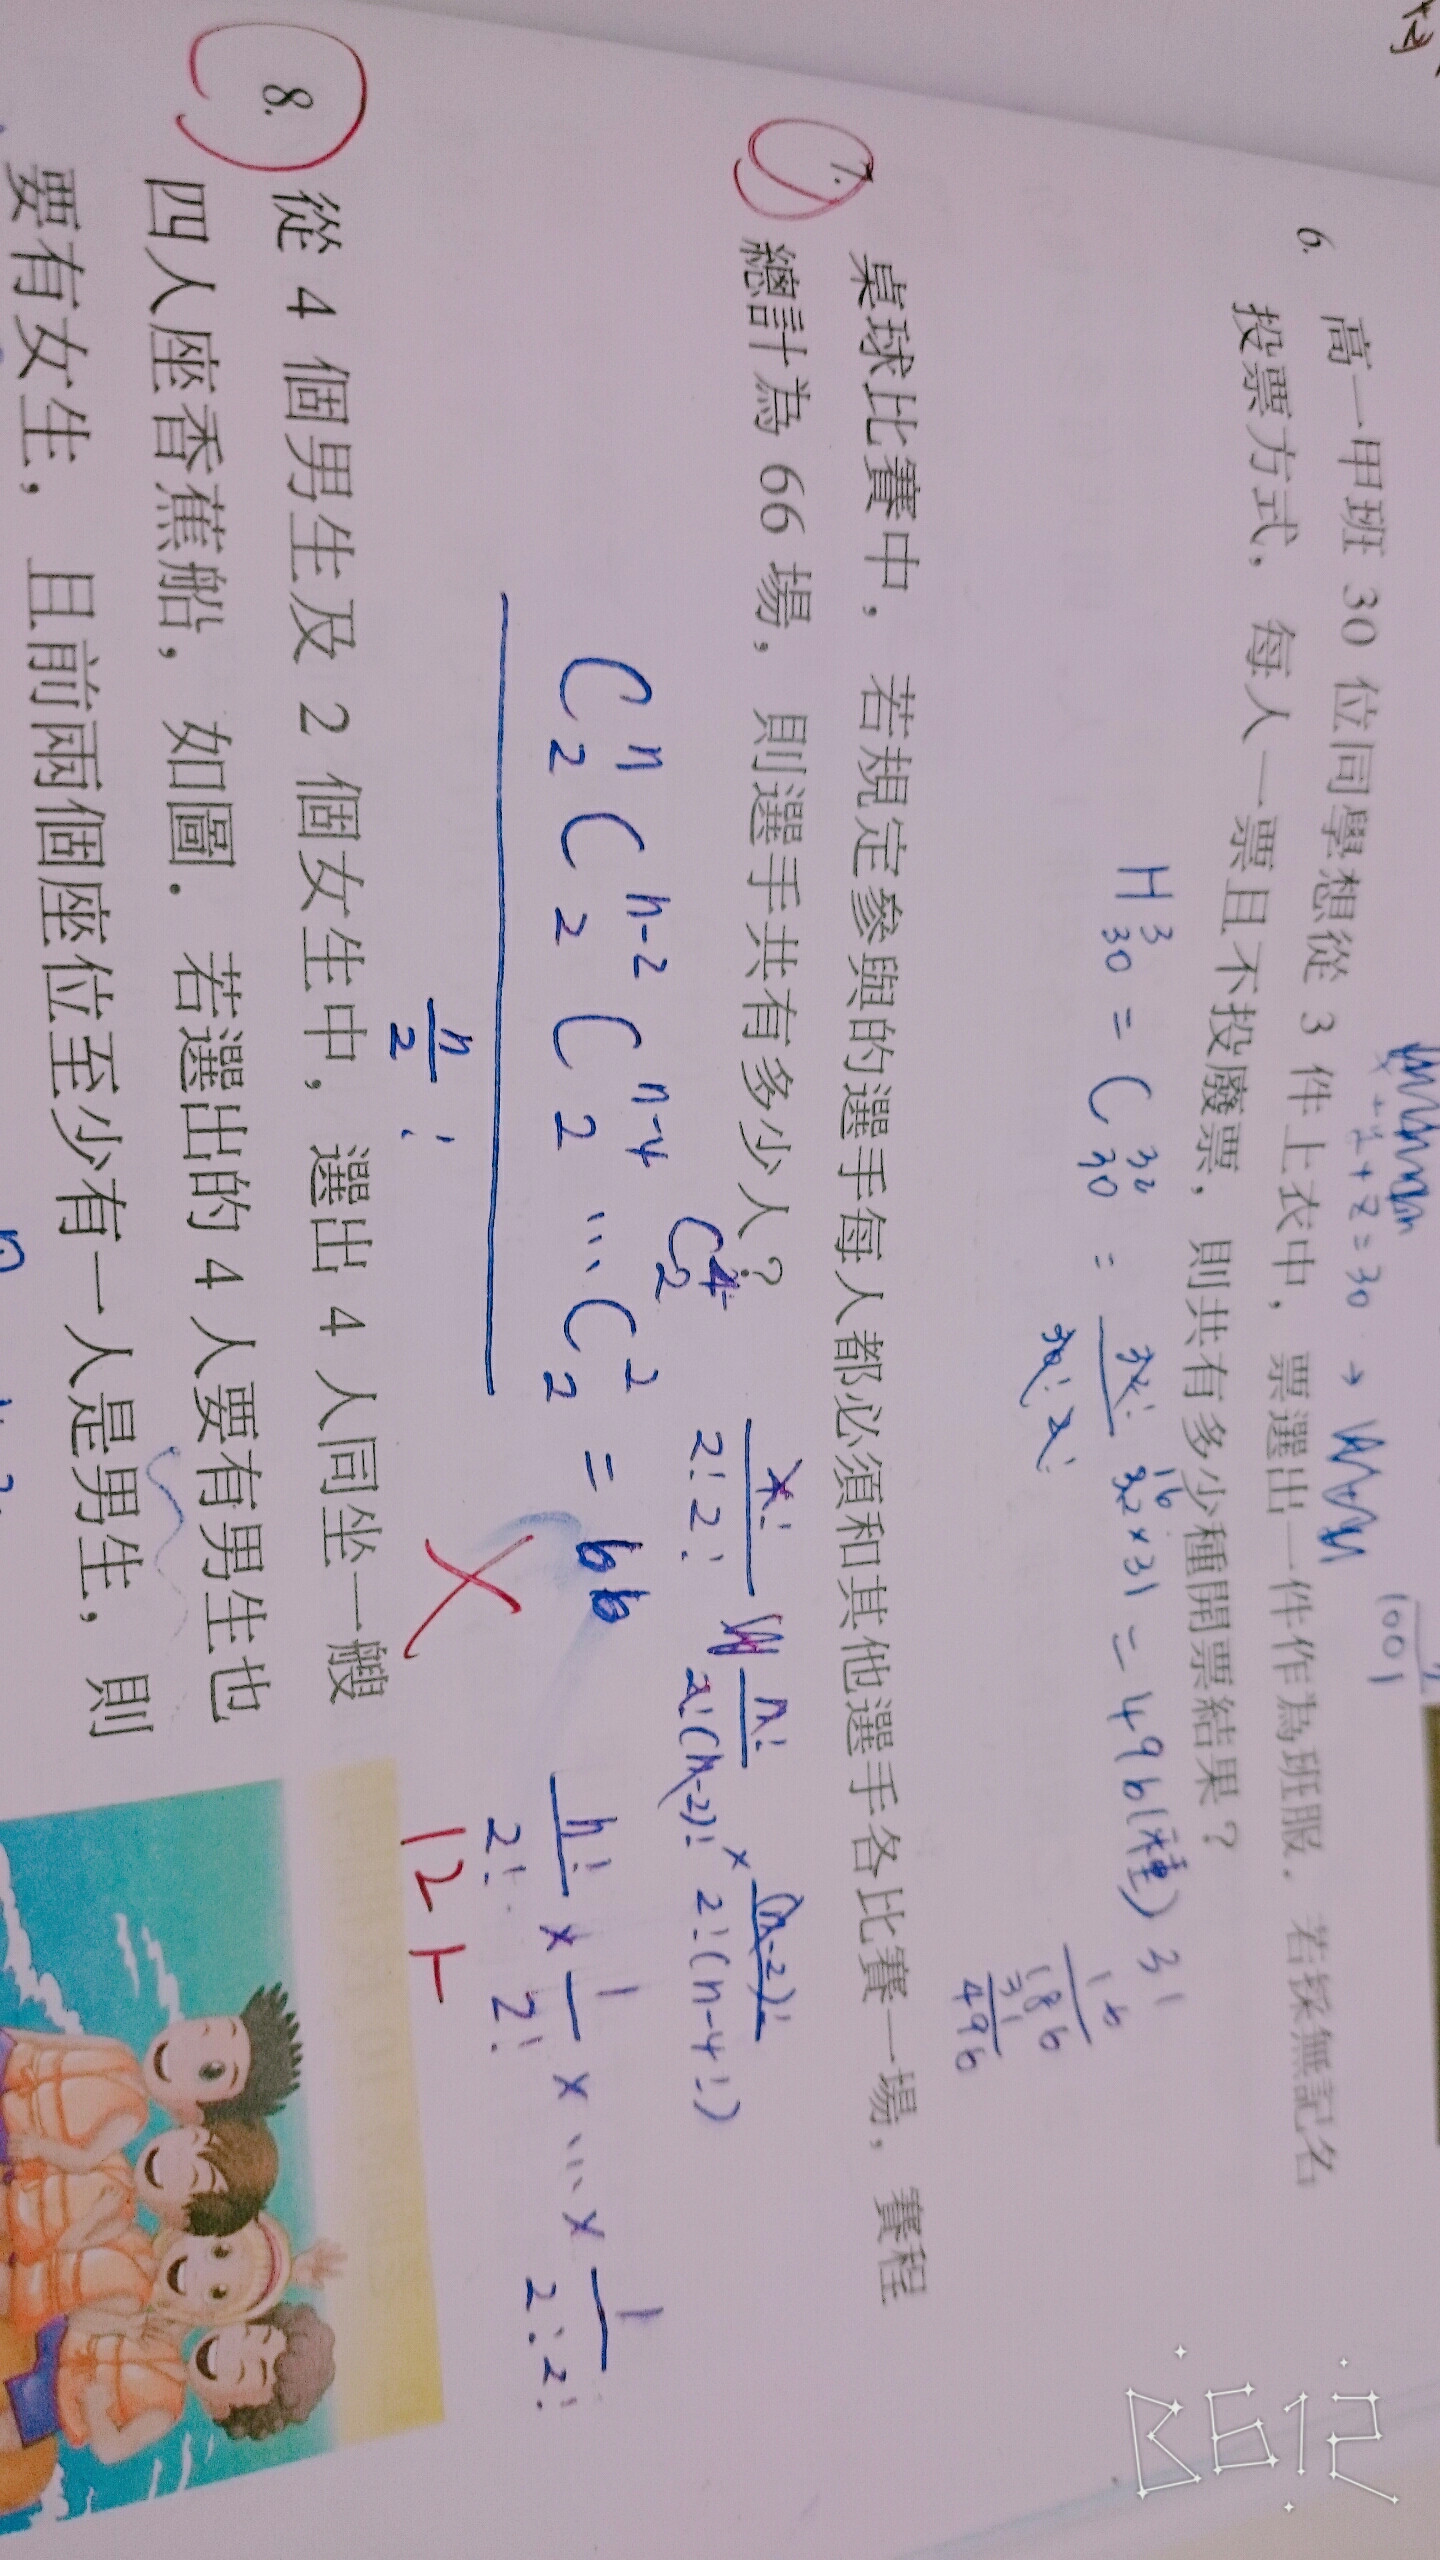 6. 高一甲班 30 位同學想從 3 件上衣中，票選出一件作為班服．若採無記名
投票方式，每人一票且不投廢票，則共有多少種開票結果？
+z=30 →
1001
H³₃₀ = C³²₃₀ = 32!/30!2! 32×31 = 496(種)
16
31
16
186
31
496
7. 桌球比賽中，若規定參與的選手每人都必須和其他選手各比賽一場，賽程
總計為 66 場，則選手共有多少人？
C⁴₂ 2!2! n!/2!(n-2)! × (n-2)!/2!(n-4!)
Cⁿ₂ Cⁿ⁻²₂ Cⁿ⁻⁴₂ ... C²₂ = 66
n/2 !
n!/2! × 1/2! × ... × 1/2!2!
12人
8. 從 4 個男生及 2 個女生中，選出 4 人同坐一艘
四人座香蕉船，如圖．若選出的 4 人要有男生也
要有女生，且前兩個座位至少有一人是男生，則
B612